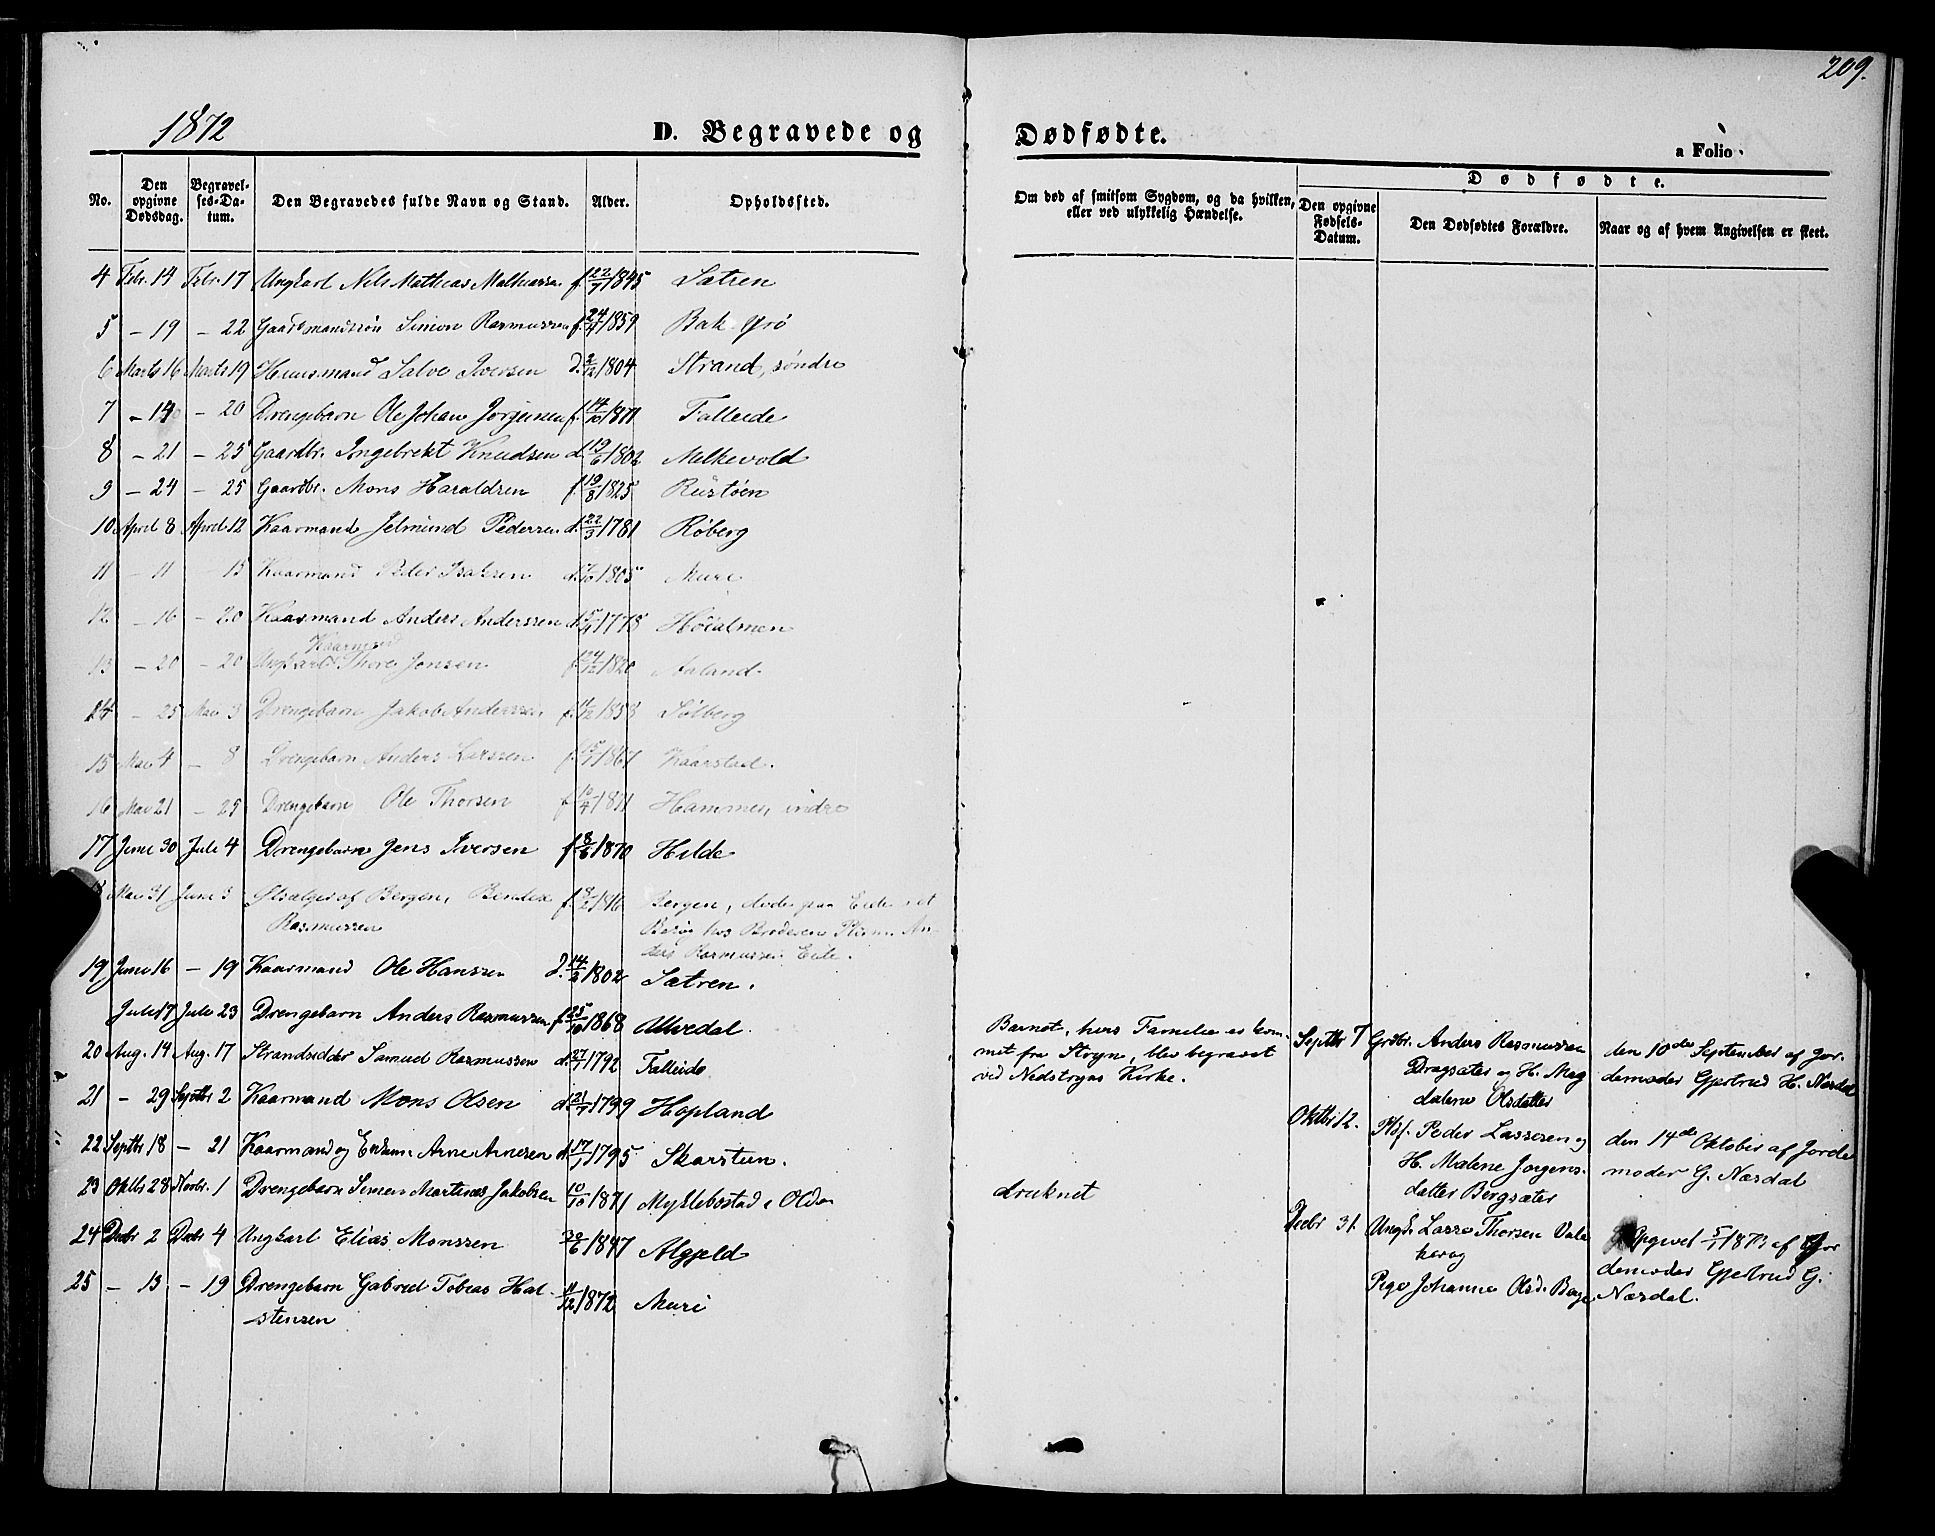 209.
1872
D. Begravede og Dødfødte.
a Folio
No.
Den opgivne Dødsdag.
Begravelses-Datum.
Den Begravedes fulde Navn og Stand.
Alder.
Opholdssted.
Om død af smitsom Sygdom, og da hvilken, eller ved ulykkelig Hændelse.
Dødfødte.
Den opgivne Fødsels-Datum.
Den Dødfødtes Forældre.
Naar og af hvem Angivelsen er skeet.
4 Febr. 14 Febr. 17 Ungkarl Nils Mathias Mathiassen f. 22/7 1845 Sætren
5 – 19 – 22 Gaardmandssøn Simon Rasmussen f. 24/4 1859 Bak
6 Marts 16 Marts 19 Huusmand Salve Iversen d. 2/12 1804 Strand, søndre
7 – 14 – 20 Drengebarn Ole Johan Jørgensen f. 14/10 1871 Falleide
8 – 21 – 25 Gaardbr. Ingebrekt Knudsen d. 19/6 1802 Melkevold
9 – 24 – 25 Gaardbr. Mons Haraldsen f. 19/8 1825 Rustøen
10 April 8 April 12 Kaarmand Jelmund Pedersen d. 22/3 1781 Røberg
11 – 11 15 Kaarmand Peder Isaksen d. 1805 Muri
12 – 16 – 20 Kaarmand Anders Anderssen d. 5/4 1775 Høialmen
Kaarmand
13 – 20 – 20 Ungkarl Thore Jensen f. 24/12 1820 Aaland
14 – 25 Mai 3 Drengebarn Jakob Anderssen f. 1858 Sølberg
15 Mai 4 – 8 Drengebarn Anders Larssen f. 1867 Kaarstad.
16 Mai 21 – 25 Drengebarn Ole Thorsen f. 10/4 1871 Hammer, indre
17 Juni 30 Juli 4 Drengebarn Jens Iversen f. 8/6 1870 Hilde
Mai 31 Juni 3 Ølsælger af Bergen, Bendix f. 8/2 1816 Bergen, døde paa Eide i et
Rasmussen Besøg hos Broderen An-
ders Rasmussen Eide.
19 Juni 16 – 19 Kaarmand Ole Hanssen d. 1802 Sætren.
Juli 17 Juli 23 Drengebarn Anders Rasmussen f. 25/10 1868 Ulvedal.
20 Aug. 14 Aug. 17 Strandsidder Samuel Rasmussen d. 27/7 1792 Falleide
21 – 29 Septbr 2 Kaarmand Mons Olsen d. 21/7 1799 Hopland
22 Septbr 18 – 21 Kaarmand og Enkem. Arne Arnesen d. 17/7 1795 Skarsteen.
23 Oktbr 28 Novbr. 1 Drengebarn Simen Martinus Jakobsen 10/10 1871 Myklebostad i Olden
24 Decbr 2 Decbr 4 Ungkarl Elias Monssen 20/6 1847 Algjeld
25 – 13 – 19 Drengebarn Gabriel Tobias Hal-
stensen 11/12 1872 Muri
Barnet, hvis Familie er kom-
met fra Stryn, blev begravet
ved Nedstryns Kirke.
druknet
Septbr 7 Grdbr. Anders Rasmussen
Dragsæter og H. Mag
dalene Olsdatter
den 10de September af Jor-
demoder Gjertrud H. Næsdal
Oktbr 12. Pldf. Peder Lassesen og
H. Malene Jørgens-
datter Bergsæter
den 14de Oktober af Jorde
moder G. Næsdal
Decbr 31. Ungk. Lasse Thorsen Vale
berog
Pige Johanne Olsd. Berge
Opgivet 5/1 1873 af Jor
demoder Gjertrud G.
Næsdal.